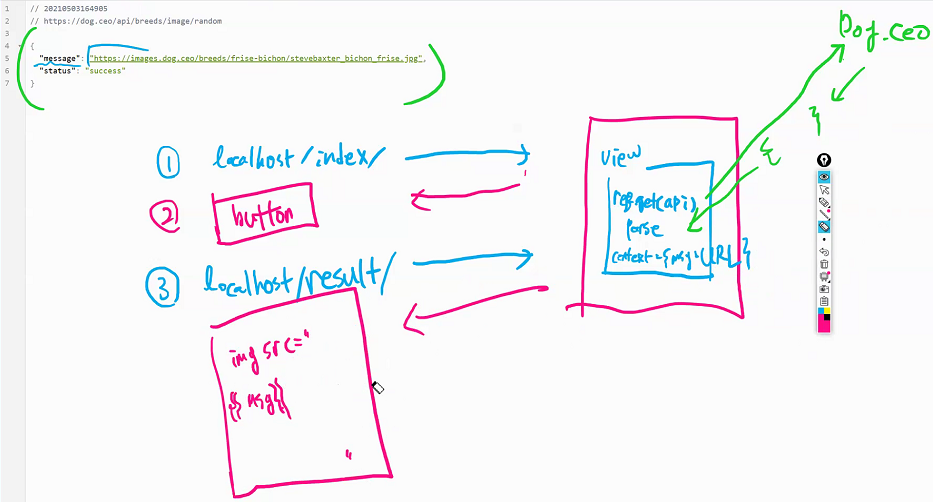 1 // 20210503164905
2 // https://dog.ceo/api/breeds/image/random
3
4 {
5 "message": "https://images.dog.ceo/breeds/frise-bichon/stevebaxter_bichon_frise.jpg",
6 "status": "success"
7 }
Dog.ceo
{
}
① localhost/index/
② button
③ localhost/result/
view
req.get(api),
parse
context={msg=URL}
img src="
{{msg}}
"